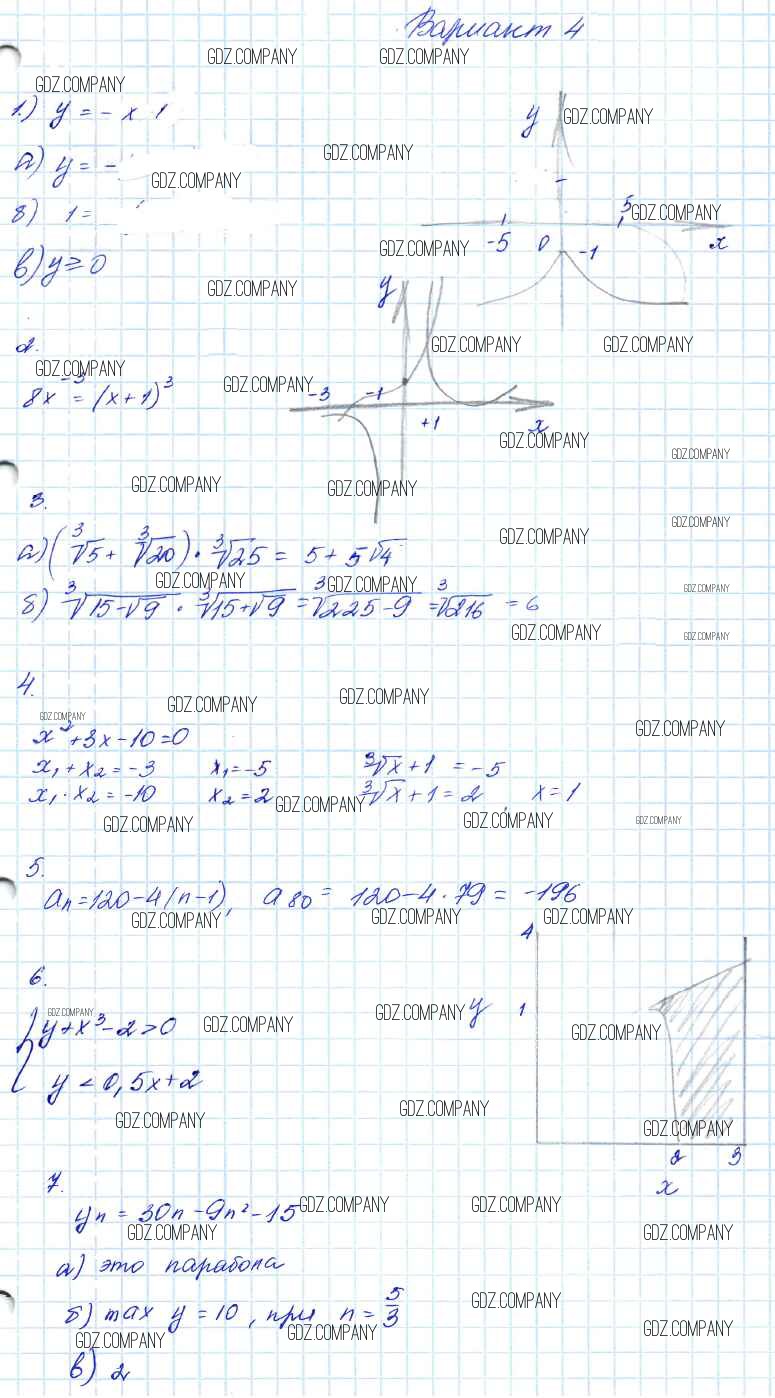 Вариант 4
GDZ.COMPANY GDZ.COMPANY
GDZ.COMPANY
1.) y = - x 1
y GDZ.COMPANY
GDZ.COMPANY
а) y = -
GDZ.COMPANY
б) 1 =
5 GDZ.COMPANY
-5 0 -1 x
GDZ.COMPANY
в) y ≥ 0
GDZ.COMPANY
y
GDZ.COMPANY GDZ.COMPANY
2.
GDZ.COMPANY
GDZ.COMPANY
8x⁻³ = (x+1)³
-3 -1
+1 x
GDZ.COMPANY
GDZ.COMPANY
GDZ.COMPANY GDZ.COMPANY
3.
GDZ.COMPANY
GDZ.COMPANY
а) (∛5 + ∛20) · ∛25 = 5 + 5√4
GDZ.COMPANY GDZ.COMPANY GDZ.COMPANY
б) ∛15-√9 · ∛15+√9 = ∛225-9 = ∛216 = 6
GDZ.COMPANY GDZ.COMPANY
4.
GDZ.COMPANY GDZ.COMPANY
GDZ.COMPANY
GDZ.COMPANY
x²+3x-10=0
x₁+x₂=-3 x₁=-5 ∛x+1 = -5
x₁·x₂=-10 x₂=2 ∛x+1=2, x=1
GDZ.COMPANY
GDZ.COMPANY GDZ.COMPANY GDZ.COMPANY
5.
aₙ=120-4(n-1), a₈₀= 120-4·79= -196
GDZ.COMPANY GDZ.COMPANY GDZ.COMPANY
4
6.
y 1
GDZ.COMPANY GDZ.COMPANY GDZ.COMPANY
{ y+x³-2>0
GDZ.COMPANY
y < 0,5x+2
GDZ.COMPANY GDZ.COMPANY
GDZ.COMPANY
2 3
x
7.
yn = 30n-9n²-15
GDZ.COMPANY GDZ.COMPANY
GDZ.COMPANY GDZ.COMPANY
а) это парабола
б) max y = 10, при n = 5/3
GDZ.COMPANY
GDZ.COMPANY GDZ.COMPANY GDZ.COMPANY
в) 2